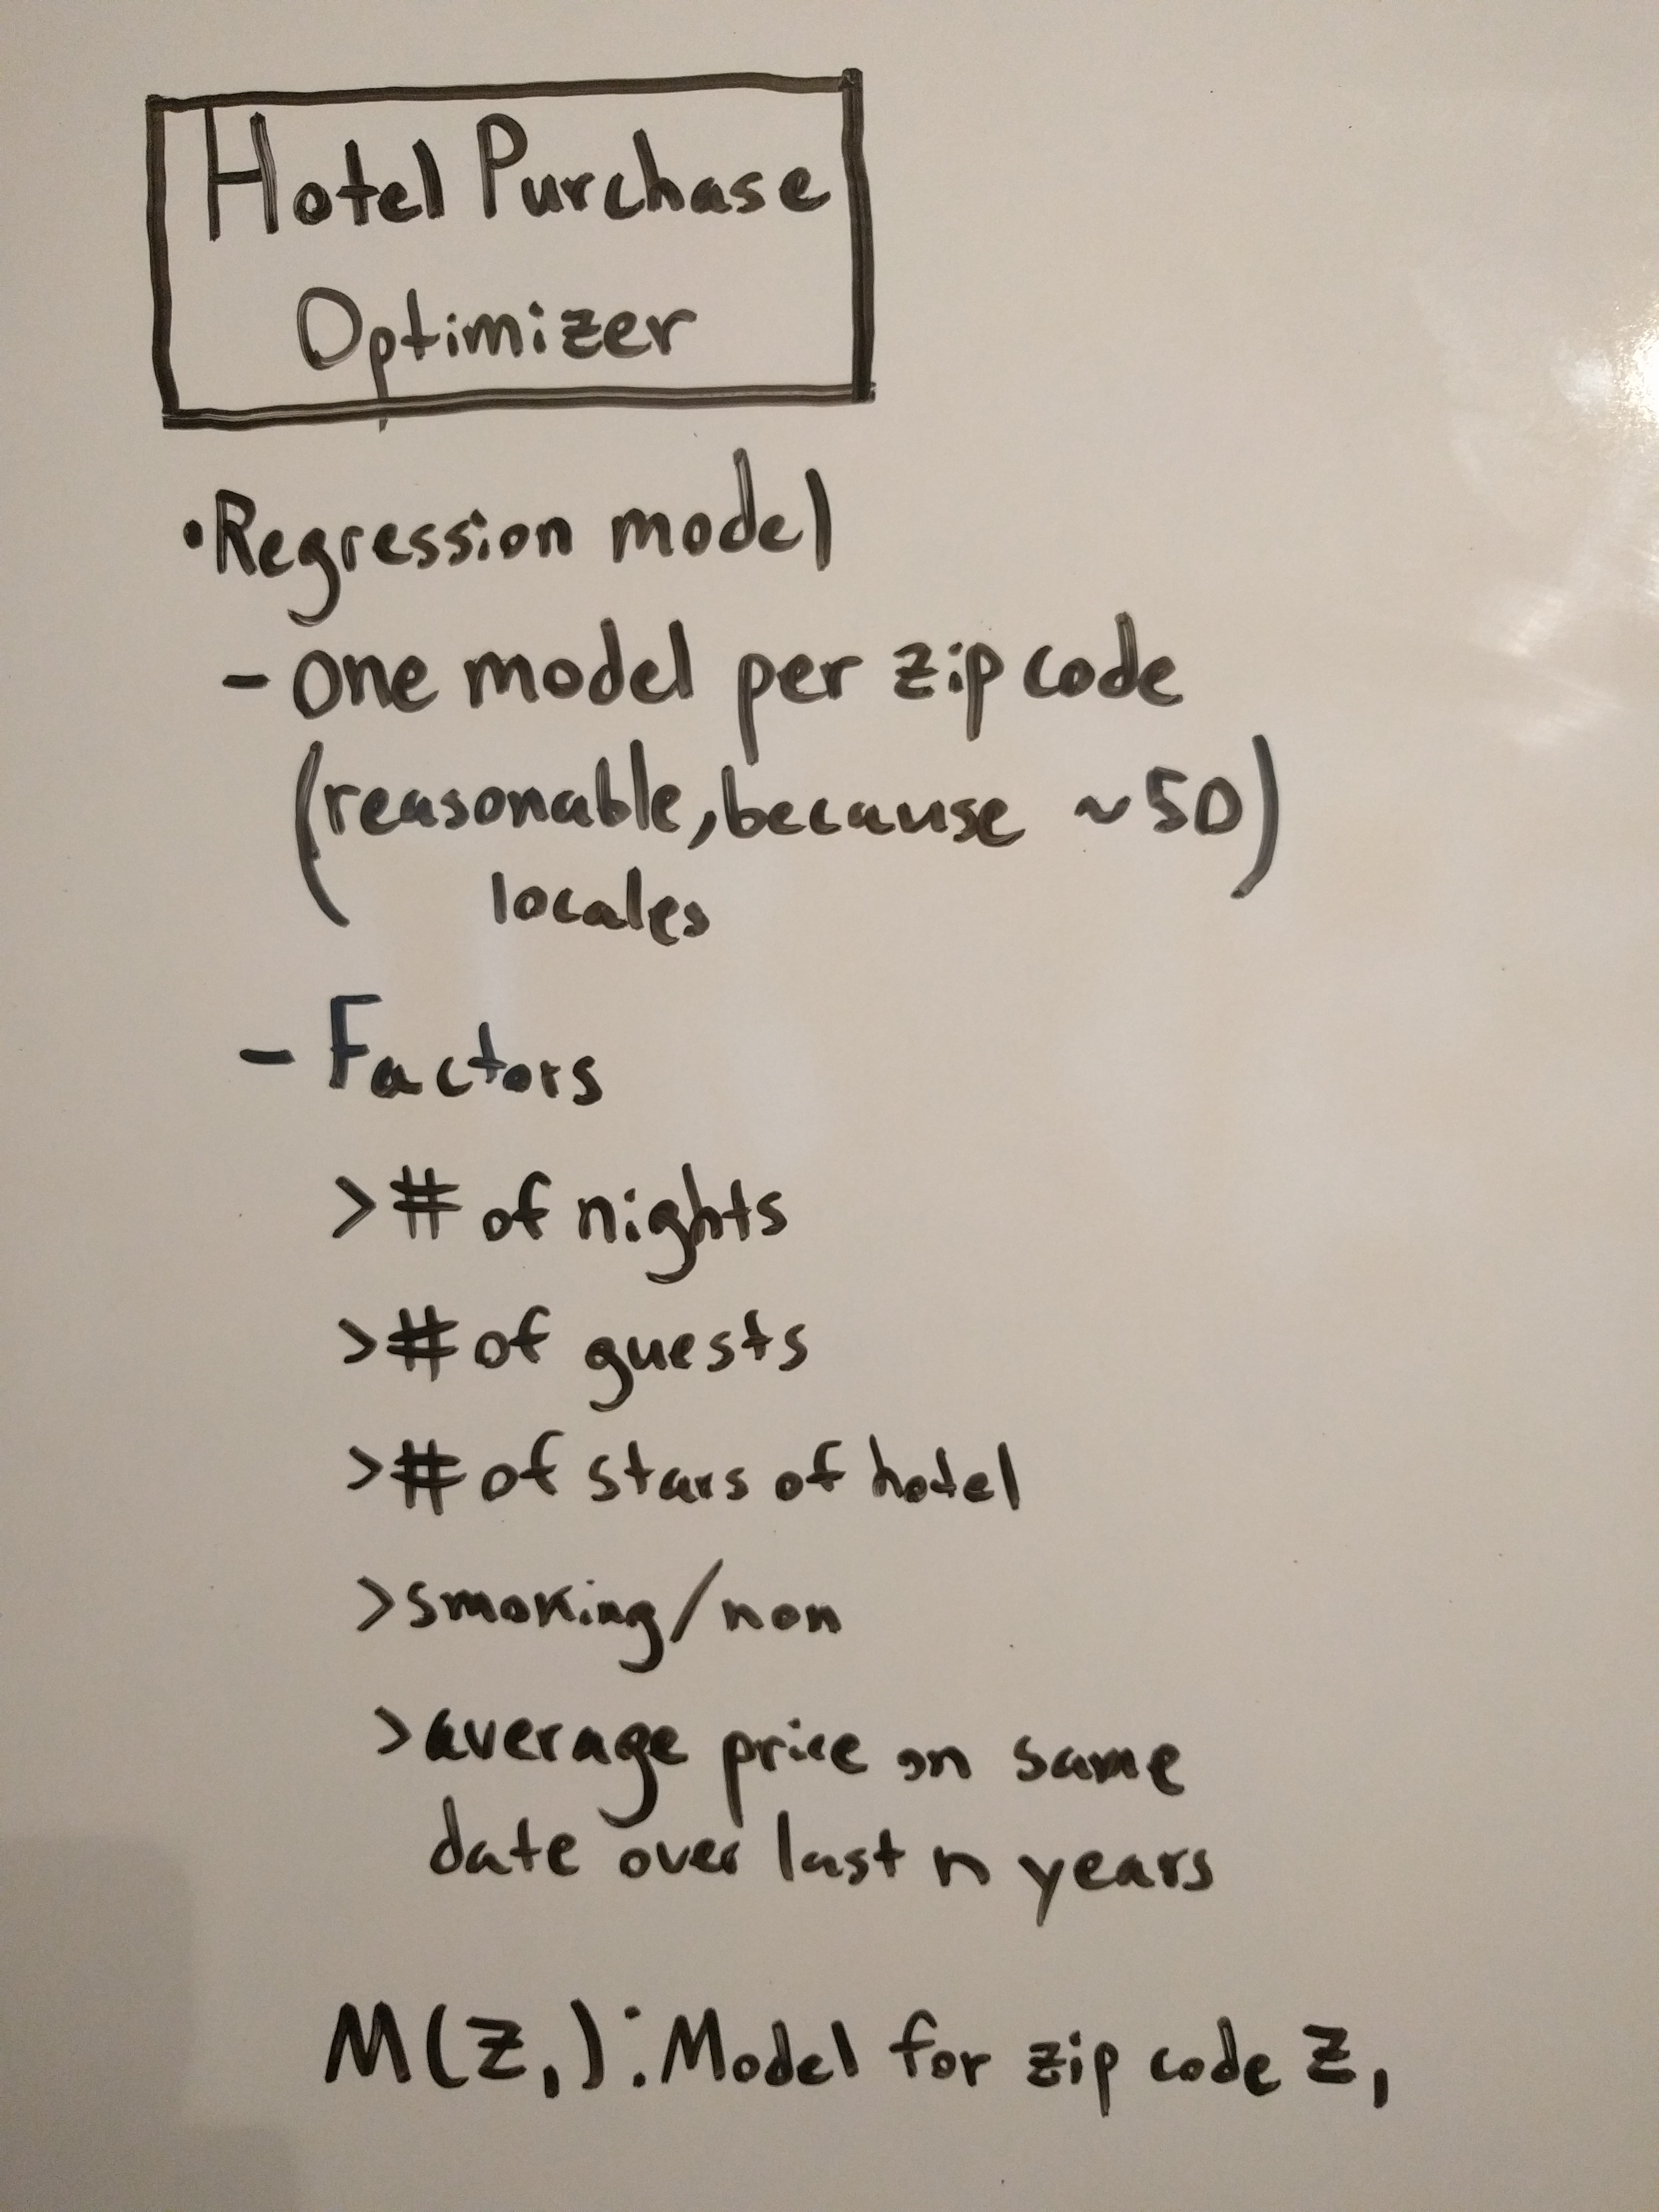 Hotel Purchase
Optimizer
•Regression model
- one model per zip code
(reasonable, because ~50)
locales
- Factors
> # of nights
> # of guests
> # of stars of hotel
> smoking/non
> average price on same
date over last n years
M(z₁): Model for zip code z₁